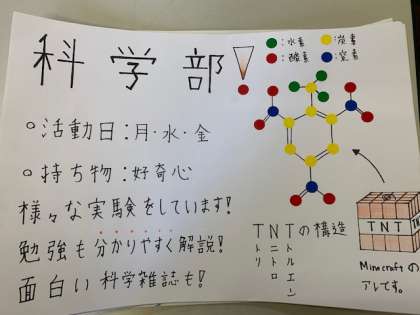 科学部!
●:水素 ●:炭素
●:酸素 ●:窒素
○活動日:月·水·金
○持ち物:好奇心
様々な実験をしています!
勉強も分かりやすく解説!
面白い科学雑誌も!
TNTの構造
トリ
ニトロ
トルエン
TNT
Minecraftの
アレです。